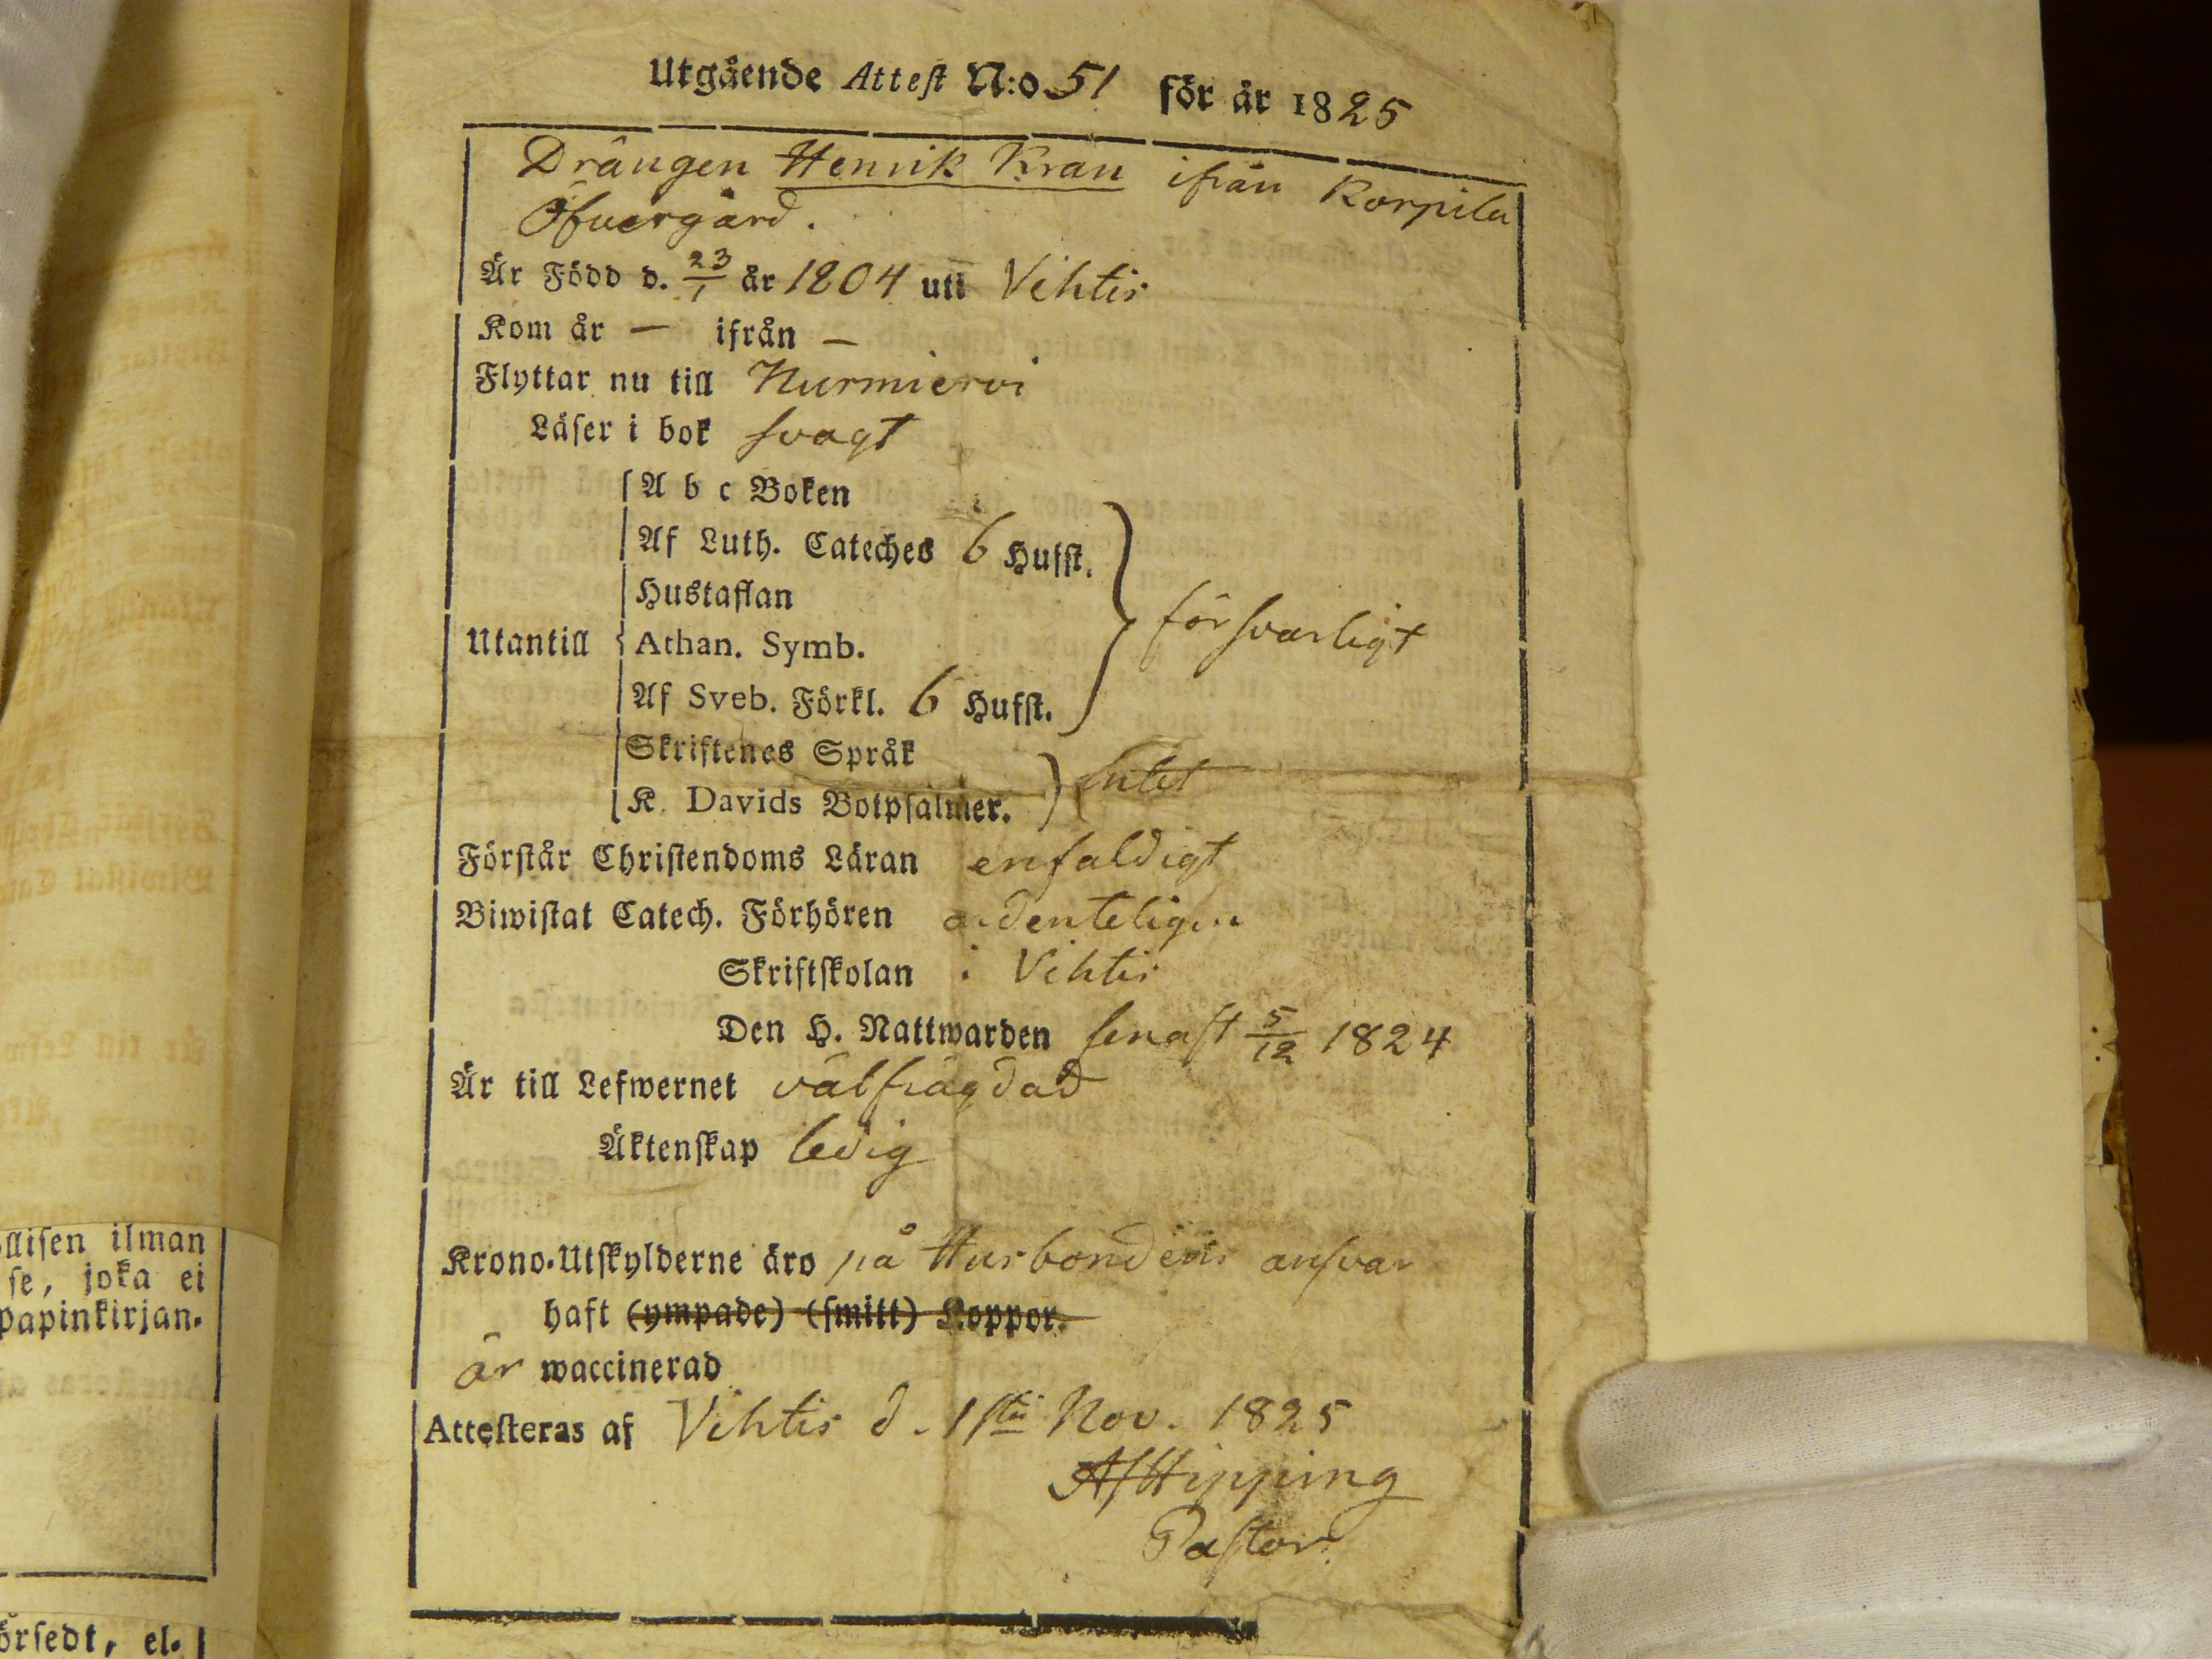 Utgående Attest N:o 51 för år 1825
Drängen Henrik Kran ifrån Korpila
Öfvergård.
Är Född d. 23/1 år 1804 uti Vihtis
Kom år — ifrån —
Flyttar nu till Nurmiervi
Läser i bok svagt
A b c Boken
Af Luth. Cateches 6 Hufst.
Hustaflan
Utantill Athan. Symb. försvarligt
Af Sveb. Förkl. 6 Hufst.
Skriftenes Språk
K. Davids Botpsalmer. Intet
Förstår Christendoms Läran enfaldigt
Biwistat Catech. Förhören ordenteligen
Skriftskolan i Vihtis
Den H. Nattwarden senast 5/12 1824
Är till Lefwernet välfrägdad
Äktenskap ledig
Krono-Utskylderne äro på Husbondens ansvar
haft (ympade) (smitt) Koppor.
är waccinerad
Attesteras af Vihtis d. 1sta Nov. 1825
AJHipping
Pastor.
llisen ilman
se, joka ei
papinkirjan.
örsedt, el.